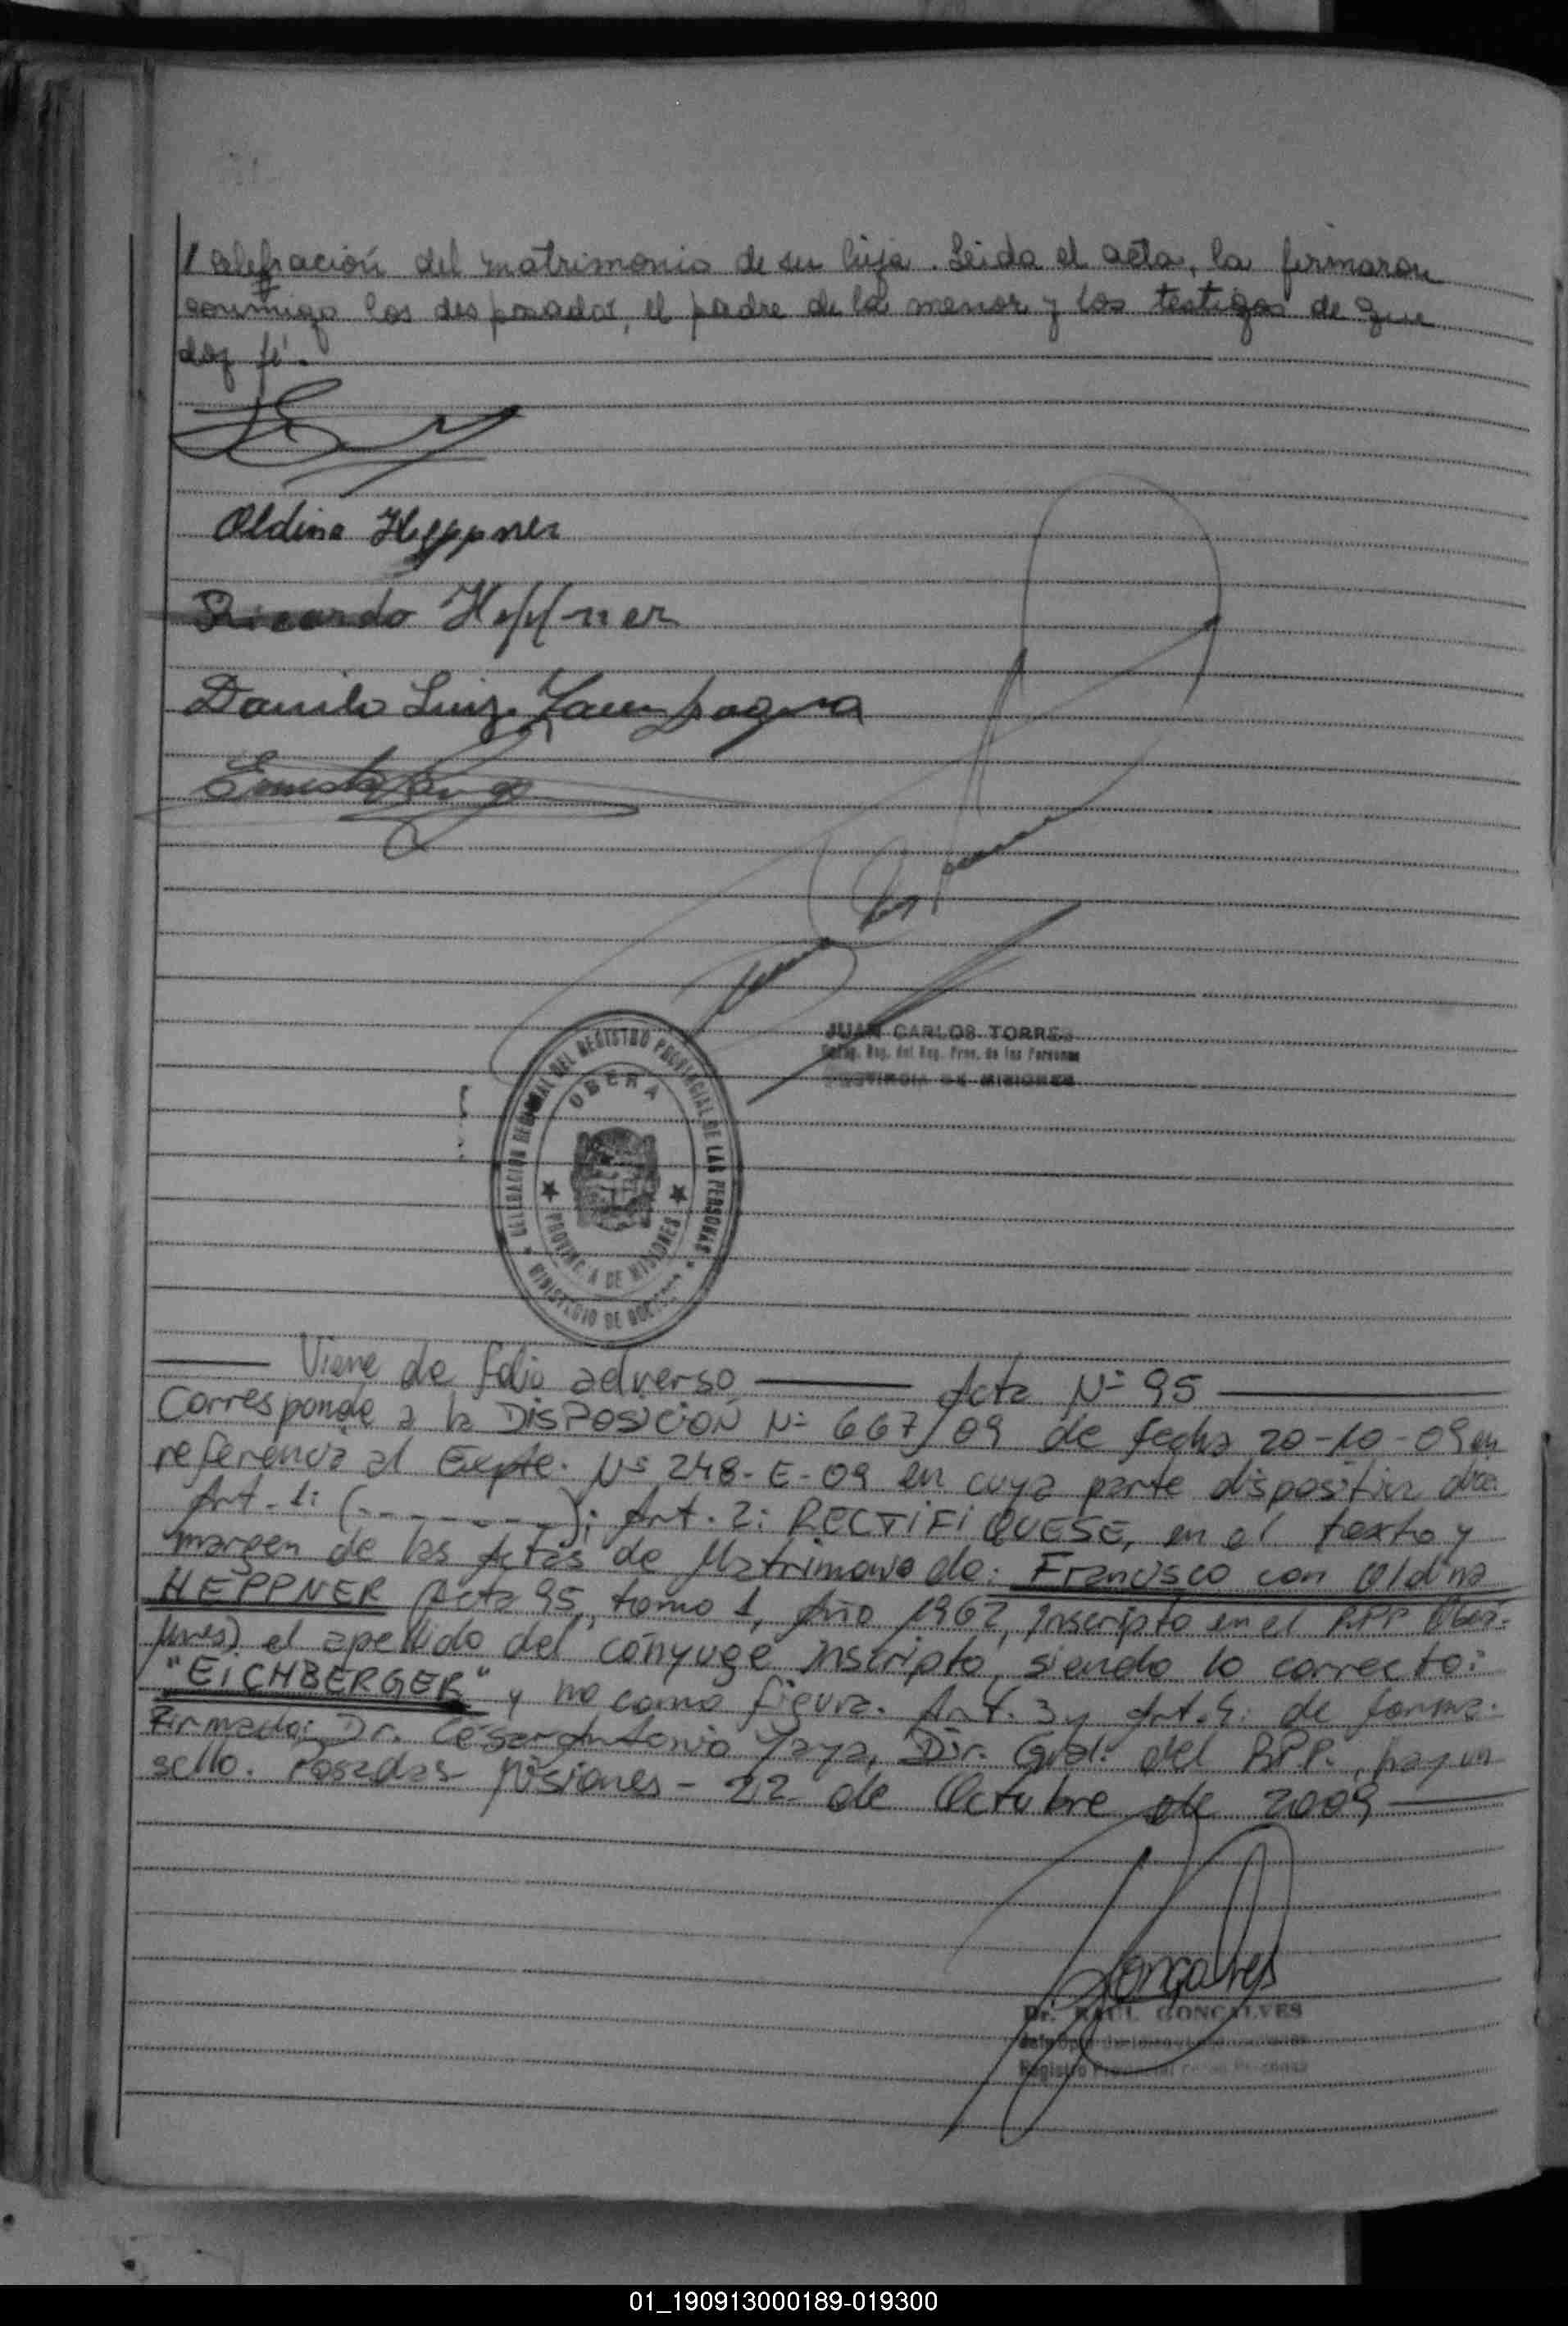 celebración del matrimonio de su hija. Leida el acta, la firmaron
conmigo los desposados, el padre de la menor y los testigos de que
doy fé.
Oldina Heppner
Ricardo Heppner
Danilo Luiz
Ernesto
JUAN CARLOS TORRES
Reg. del Reg. Prov. de las Personas
PROVINCIA DE MISIONES
DELEGACION REGIONAL DEL REGISTRO PROVINCIAL DE LAS PERSONAS
OBERA
PROVINCIA DE MISIONES
MINISTERIO DE GOBIERNO
Viene de folio adverso Acta Nº 95
Corresponde a la DISPOSICIÓN Nº 667/09 de fecha 20-10-09 en
referencia al Expte. Nº 248-E-09 en cuya parte dispositiva dice:
Art. 1: (- - - - - - - -); Art. 2: RECTIFIQUESE, en el texto y
margen de las Actas de Matrimonio de: Francisco con Oldina
HEPPNER (Acta 95, tomo 1, Año 1962, Inscripto en el RPP
el apellido del cónyuge inscripto, siendo lo correcto:
"EICHBERGER" y no como figura. Art. 3 y Art. 4: de forma.
Firmado: Dr. César Antonio Yaya, Dir. Gral. del RPP., hay un
sello. Posadas Misiones - 22 de Octubre de 2009
Goncalves
Dr. RAUL GONCALVES
Registro Provincial de las Personas
01_190913000189-019300